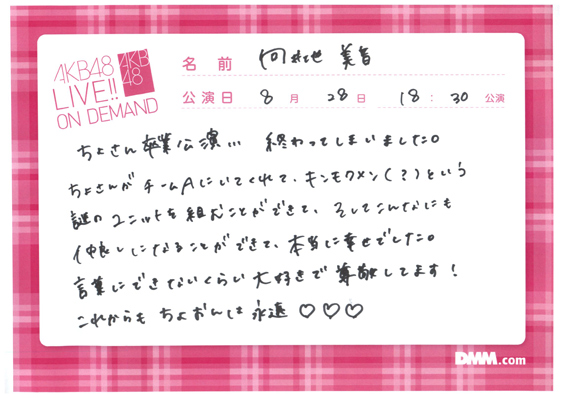 AKB48
LIVE!!
ON DEMAND
AKB
48
名前 向井地 美音
公演日 8月 28日 18:30公演
ちよさん卒業公演... 終わってしまいました。
ちよさんがチームAにいてくれて、キンモクメン(?)という
謎のユニットを組むことができて、そしてこんなにも
仲良しになることができて、本当に幸せでした。
言葉にできないくらい大好きで尊敬してます!
これからもちよおんは永遠♡♡♡
DMM.com